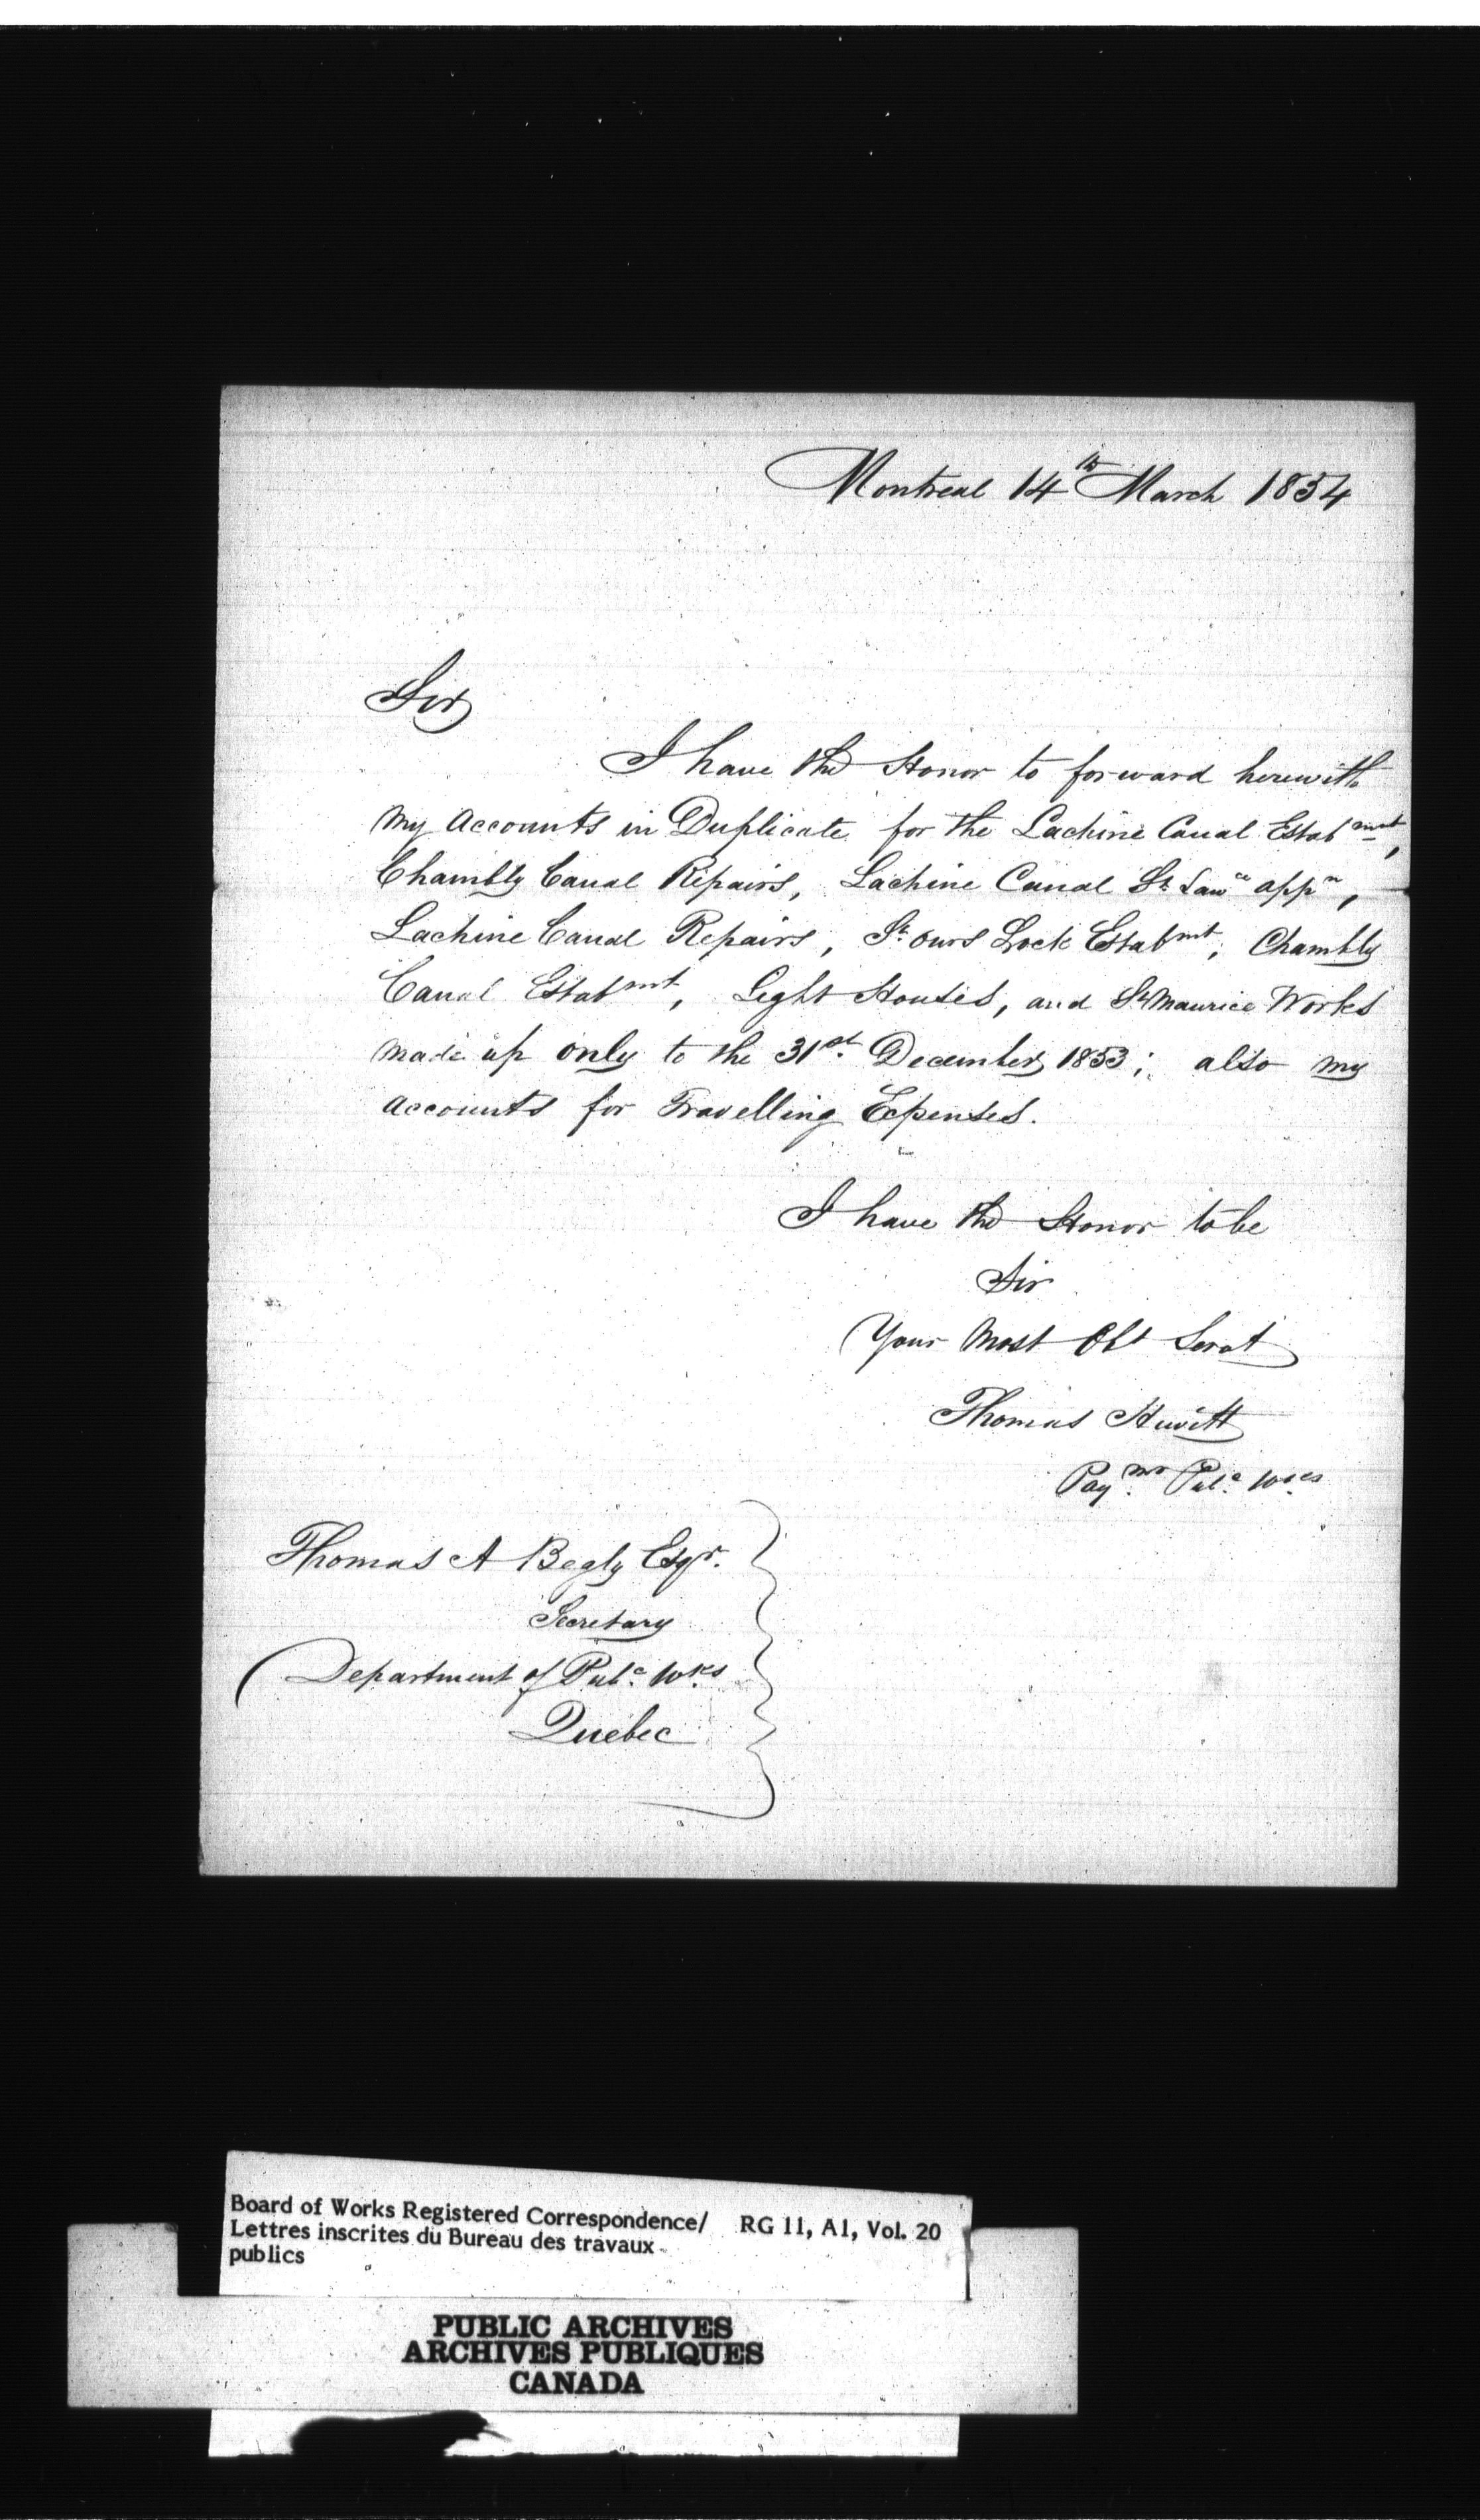 Montreal 14th March 1854
Sir
I have the Honor to forward herewith
my Accounts in Duplicate for the Lachine Canal Estabmt,
Chambly Canal Repairs, Lachine Canal St. Lawce appn,
Lachine Canal Repairs, St. Ours Lock Estabmt, Chambly
Canal Estabmt, Light Houses, and St Maurice Works
made up only to the 31st. December 1853; also my
accounts for Travelling Expenses.
I have the Honor to be
Sir
Your Most Obt Servt
Thomas Hewitt
Paymr. Pubc. Wkes
Thomas A Begly Esqr.
Secretary
Department of Pubc. Wkes
Quebec
Board of Works Registered Correspondence/ RG 11, A1, Vol. 20
Lettres inscrites du Bureau des travaux
publics
PUBLIC ARCHIVES
ARCHIVES PUBLIQUES
CANADA